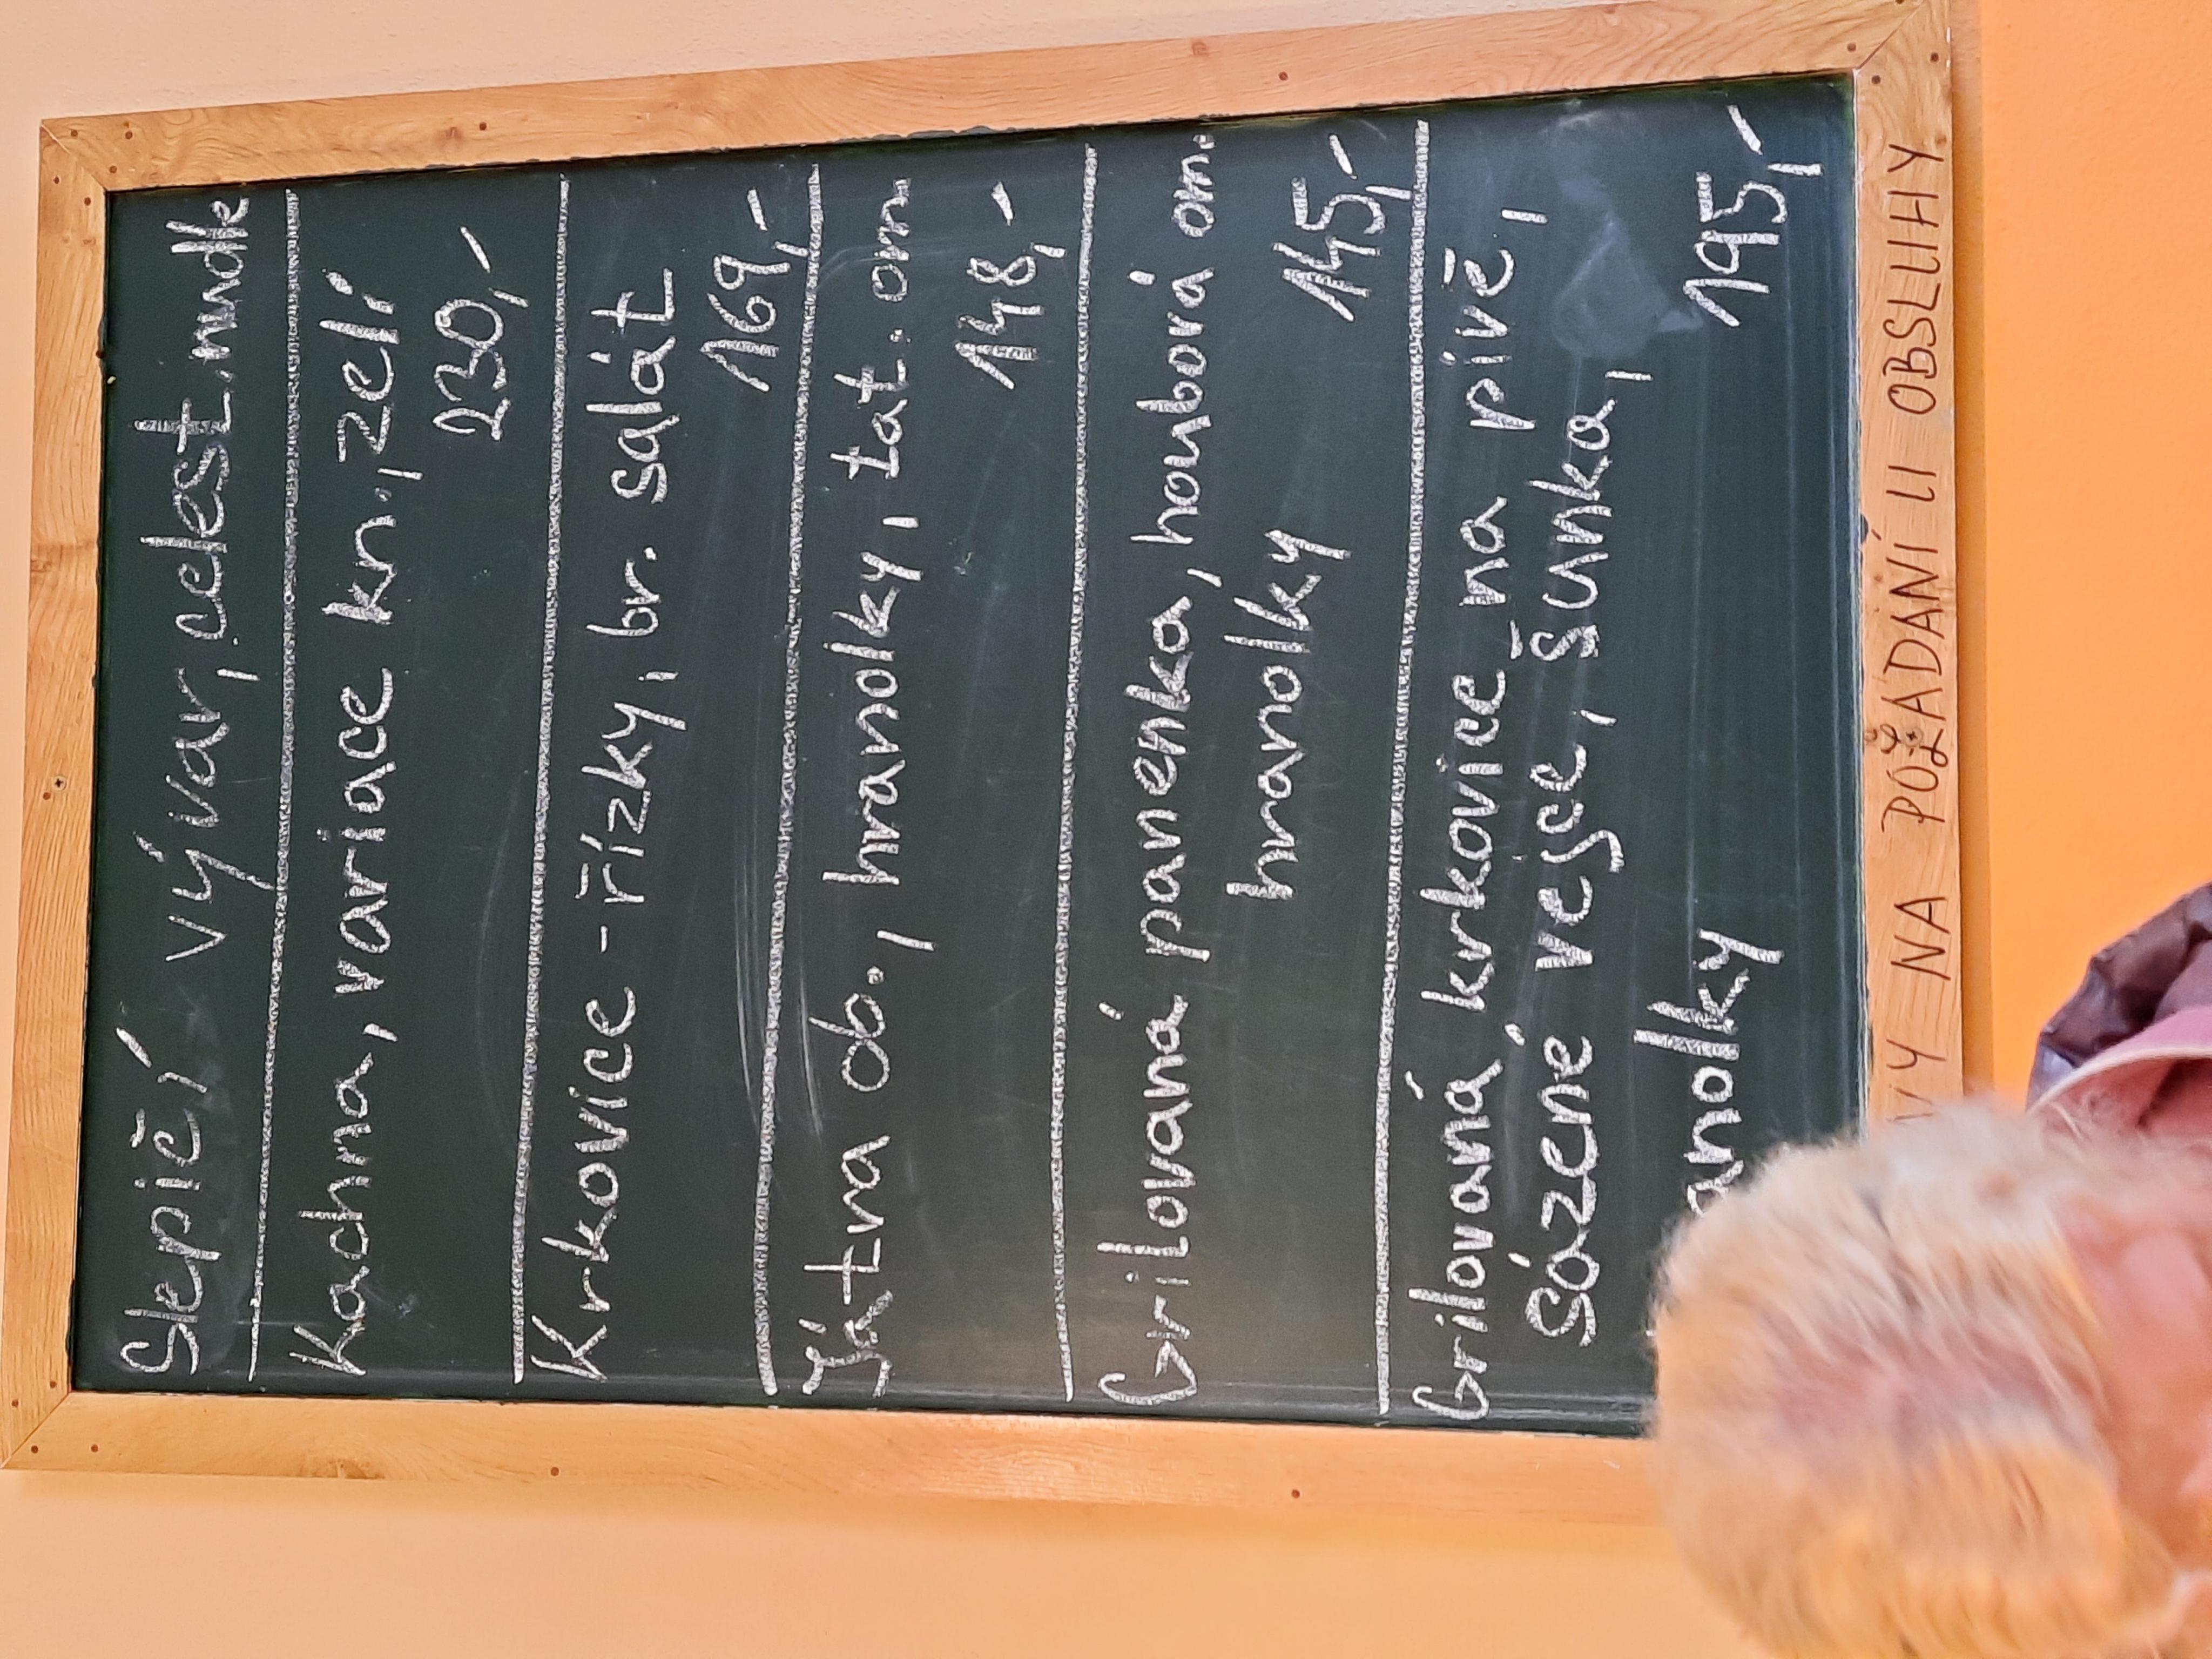 Slepičí vývar, celest. nudle
Kachna, variace kn., zelí
230,-
Krkovice - řízky, br. salát
169,-
Játra ob., hranolky, tat. om.
148,-
Grilovaná panenka, houbová om.
hranolky
145,-
Grilovaná krkovice na pivě,
Sázené vejce, šunka,
anolky 195,-
VY NA POŽÁDÁNÍ U OBSLUHY